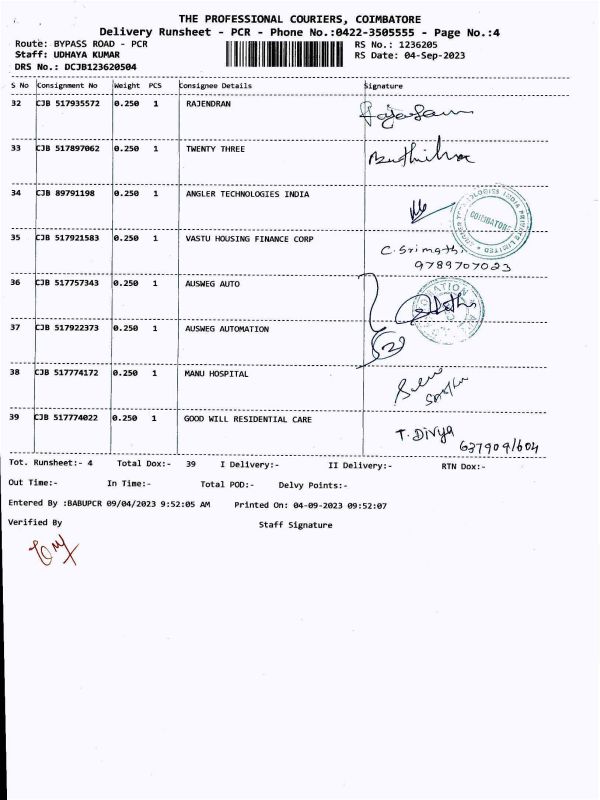 THE PROFESSIONAL COURIERS, COIMBATORE
Delivery Runsheet - PCR - Phone No.:0422-3505555 - Page No.:4
Route: BYPASS ROAD - PCR
RS No.: 1236205
Staff: UDHAYA KUMAR
RS Date: 04-Sep-2023
DRS No.: DCJB123620504
S No Consignment No Weight PCS Consignee Details Signature
32 CJB 517935572 0.250 1 RAJENDRAN
33 CJB 517897062 0.250 1 TWENTY THREE
34 CJB 89791198 0.250 1 ANGLER TECHNOLOGIES INDIA
COIMBATORE
35 CJB 517921583 0.250 1 VASTU HOUSING FINANCE CORP
C. Srimathi
9789707023
36 CJB 517757343 0.250 1 AUSWEG AUTO
37 CJB 517922373 0.250 1 AUSWEG AUTOMATION
2
38 CJB 517774172 0.250 1 MANU HOSPITAL
39 CJB 517774022 0.250 1 GOOD WILL RESIDENTIAL CARE
T. Divya
Tot. Runsheet:- 4 Total Dox:- 39 I Delivery:- II Delivery:- RTN Dox:-
Out Time:- In Time:- Total POD:- Delvy Points:-
Entered By :BABUPCR 09/04/2023 9:52:05 AM Printed On: 04-09-2023 09:52:07
Verified By Staff Signature